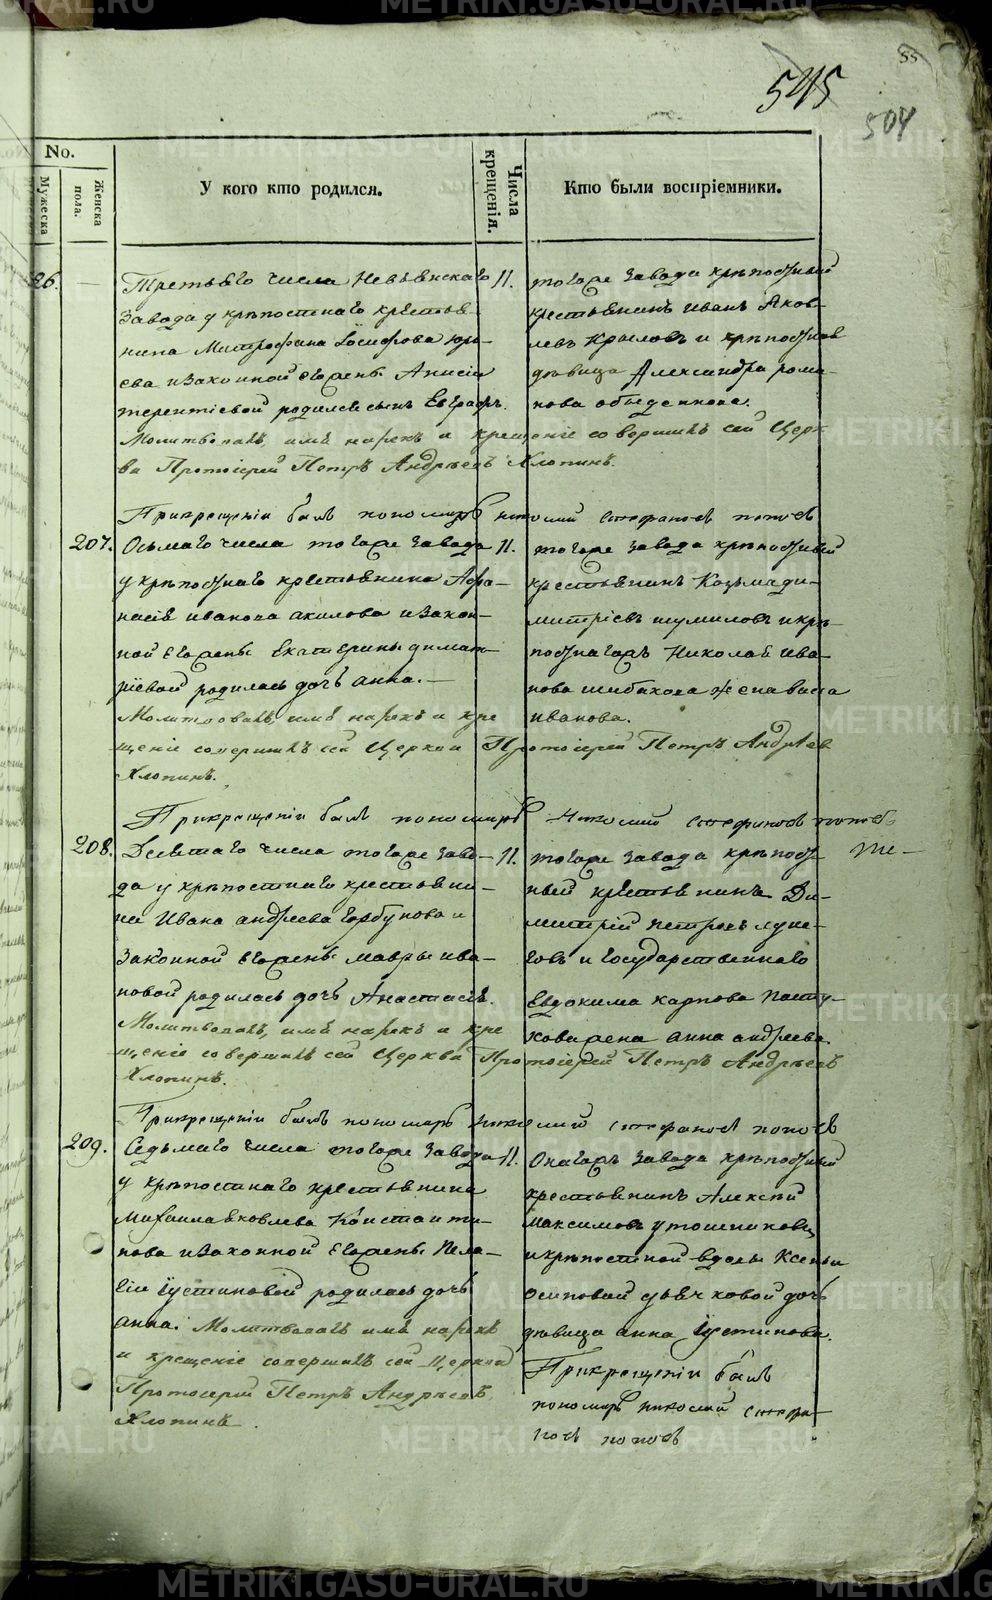 55
545
504
No.
Мужеска
Женска
пола.
У кого кто родился.
Числа
крещенія.
Кто были воспріемники.
26.
Третьяго числа Невьянскаго
завода у крѣпостнаго крестья-
нина Митрофана Іосифова
ева и законной его жены Анисіи
терентіевой родился сынъ Евграфъ.
Молитвовалъ, имя нарекъ и крещеніе совершилъ сей Церк
ви Протоіерей Петръ Андреевъ Хлопинъ.
При крещеніи былъ пономарь николай стефановъ поповъ
11.
тогоже завода крѣпостный
крестьянинъ Иванъ Яков-
левъ Крыловъ и крѣпостная
дѣвица Александра рома-
нова объеденкова.
207.
Осьмаго числа тогоже завода
у крѣпостнаго крестьянина Афа-
насія иванова акилова и закон-
ной его жены Екатерины димит-
ріевой родилась дочь анна.
Молитвовалъ, имя нарекъ и кре
щеніе совершилъ сей Церкви Протоіерей Петръ Андреев
Хлопинъ.
11.
тогоже завода крѣпостный
крестьянинъ Козьма ди-
митріевъ шумиловъ и крѣ-
постнагожъ Николая ива-
нова шибакова жена васса
иванова.
При крещеніи былъ пономарь николай стефановъ поповъ
208.
Девятаго числа тогоже заво-
да у крѣпостнаго крестьяни-
на Ивана андреева горбунова и
законной его жены мавры ива-
новой родилась дочь Анастасія.
Молитвовалъ, имя нарекъ и кре
щеніе совершилъ сей Церкви Протоіерей Петръ Андреевъ
Хлопинъ.
11.
тогоже завода крѣпост-
ный крестьянинъ Ди-
митрій петровъ луне-
говъ и государственнаго
Евдокима карпова пасту-
хова жена анна андреева.
При крещеніи былъ пономарь николай стефановъ поповъ
209.
Седьмаго числа тогоже завода
у крѣпостнаго крестьянина
михаила яковлева Константи-
нова и законной его жены Пела-
гіи іустиновой родилась дочь
анна. Молитвовалъ имя нарекъ
и крещеніе совершилъ сей Церкви
Протоіерей Петръ Андреевъ
Хлопинъ.
11.
Онагожъ завода крѣпостный
крестьянинъ Алексей
максимовъ
и крѣпостной вдовы Ксеньи
осиповой дочь
дѣвица анна іустинова.
При крещеніи былъ
пономарь николай стефа-
новъ поповъ
METRIKI.GASO-URAL.RU